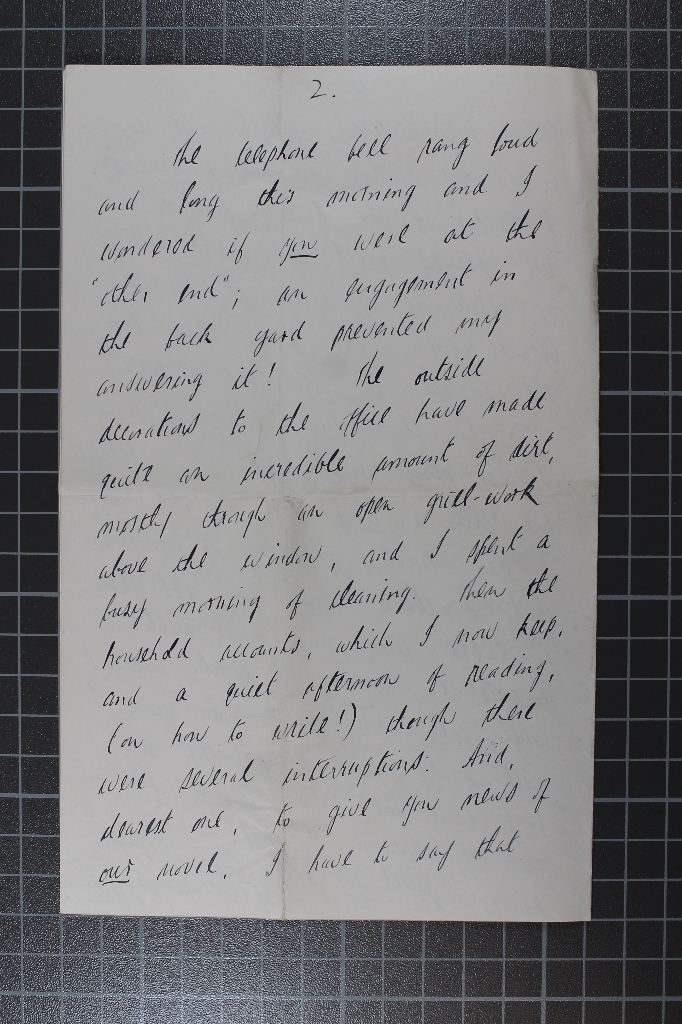 2.
The telephone bell rang loud
and long this morning and I
wondered if you were at the
"other end"; an engagement in
the back yard prevented my
answering it! The outside
decorations to the office have made
quite an incredible amount of dirt,
mostly through an open grill-work
above the window, and I spent a
busy morning of cleaning. Then the
household accounts, which I now keep,
and a quiet afternoon of reading,
(on how to write!) though there
were several interruptions. And,
dearest one, to give you news of
our novel, I have to say that